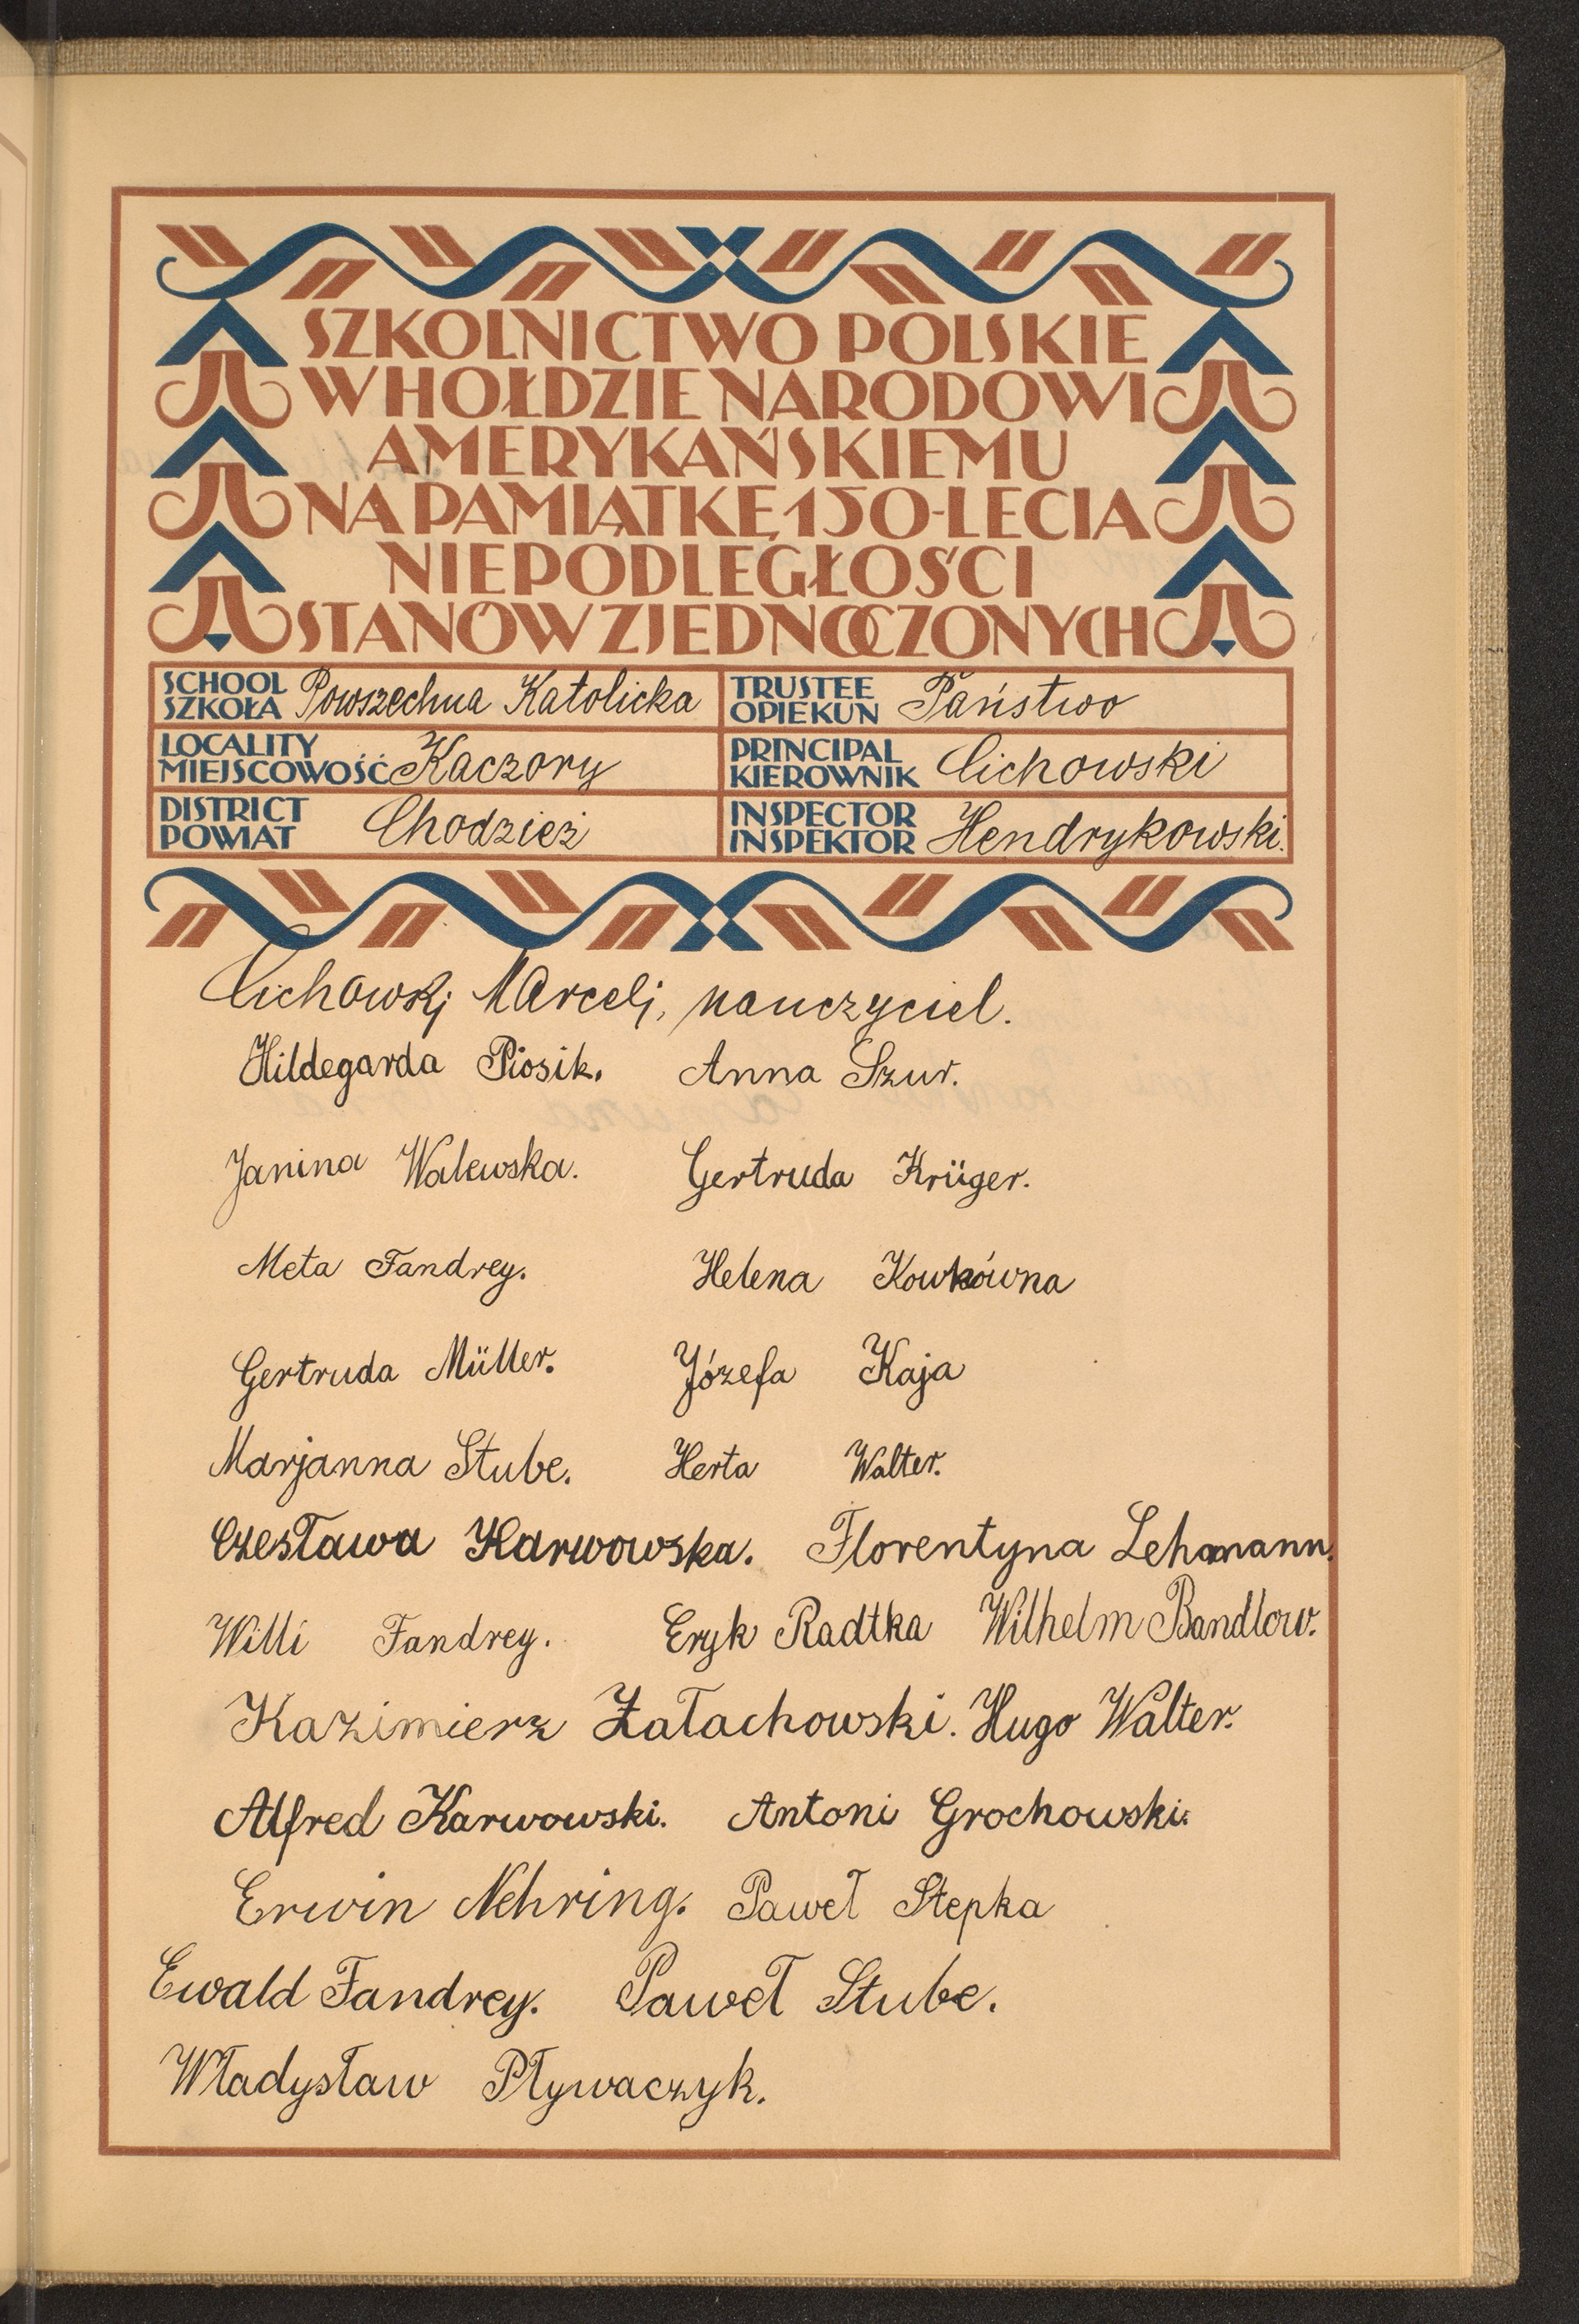 SZKOLNICTWO POLSKIE
W HOŁDZIE NARODOWI
AMERYKAŃSKIEMU
NA PAMIĄTKĘ 150-LECIA
NIEPODLEGŁOŚCI
STANÓW ZJEDNOCZONYCH
SCHOOL SZKOŁA Powszechna Katolicka TRUSTEE OPIEKUN Państwo
LOCALITY MIEJSCOWOŚĆ Kaczory PRINCIPAL KIEROWNIK Cichowski
DISTRICT POWIAT Chodzież INSPECTOR INSPEKTOR Hendrykowski.
Cichowski Marceli, nauczyciel.
Hildegarda Piosik. Anna Szur.
Janina Walewska. Gertruda Krüger.
Meta Fandrey. Helena Kowkówna
Gertruda Müller. Józefa Kaja
Marjanna Stube. Herta Walter.
Czesława Karwowska. Florentyna Lehmann.
Willi Fandrey. Eryk Radtka Wilhelm Bandlow.
Kazimierz Załachowski. Hugo Walter.
Alfred Karwowski. Antoni Grochowski.
Erwin Nehring. Paweł Stepka
Ewald Fandrey. Paweł Stube.
Władysław Pływaczyk.